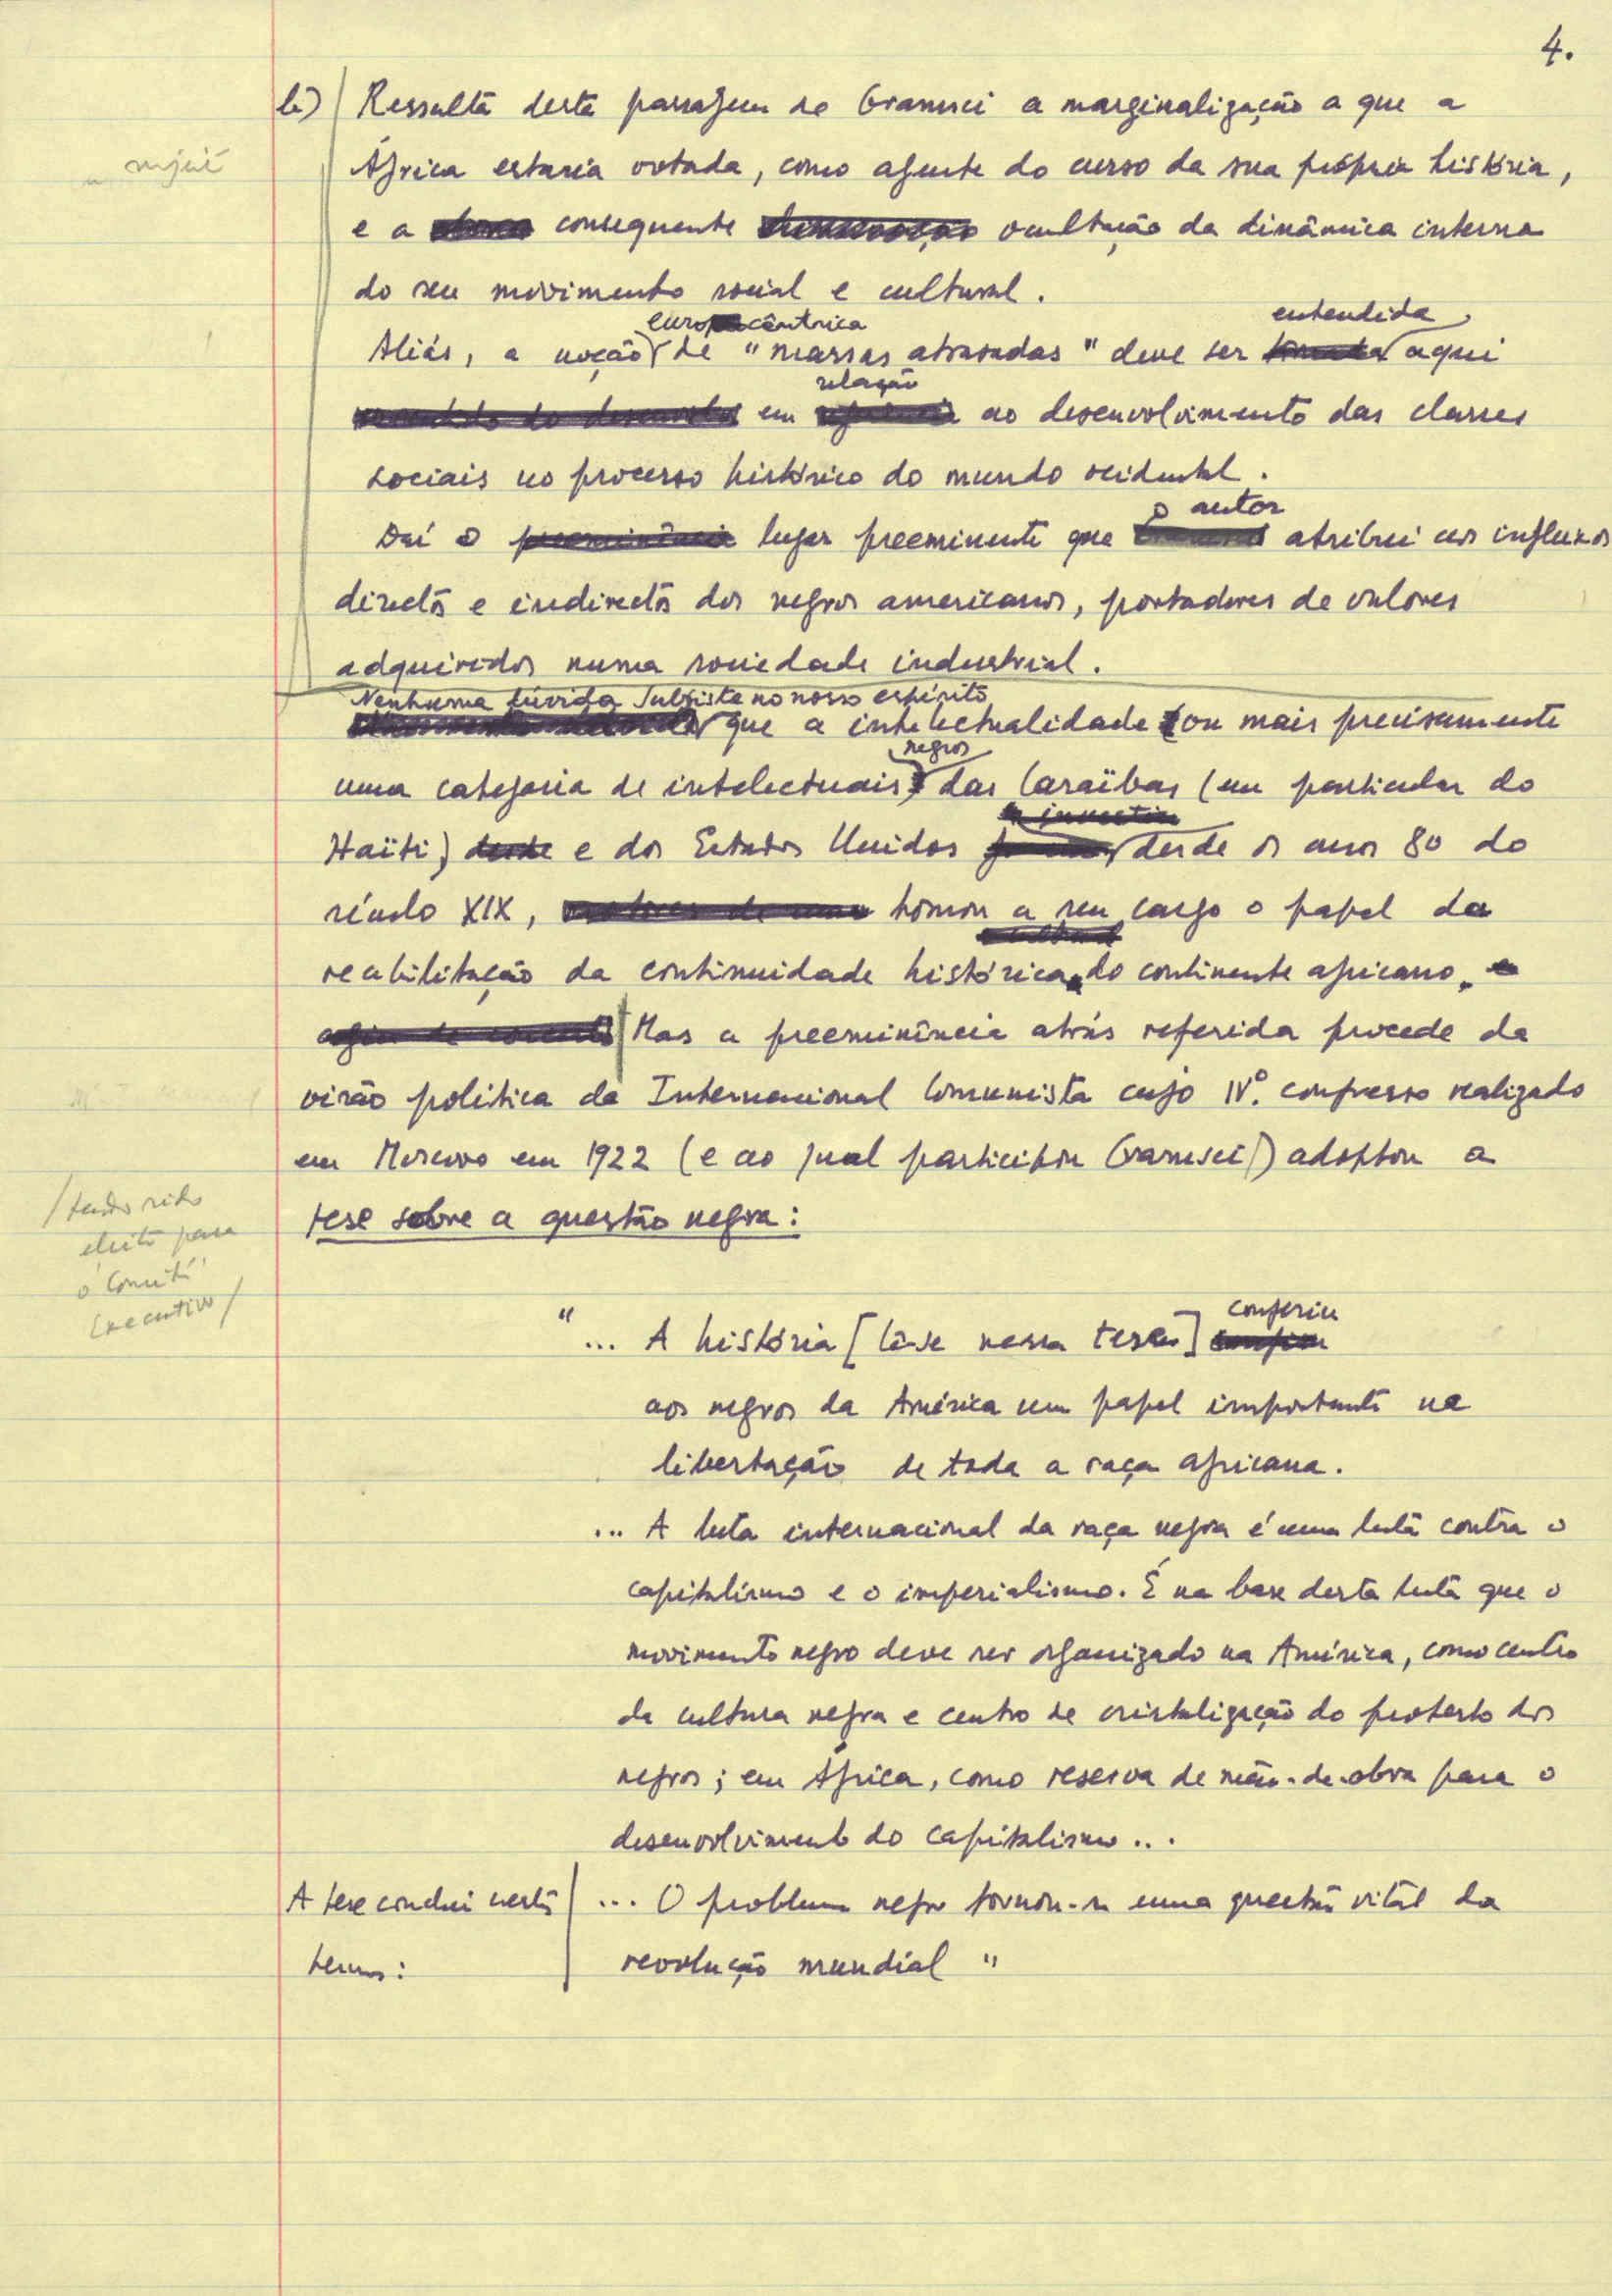 4.
b) Ressalta desta passagem de Gramsci a marginalização a que a
África estaria votada, como agente do curso da sua própria história,
e a consequente ocultação da dinâmica interna
do seu movimento social e cultural.
eurocêntrica entendida
Aliás, a noção de "massas atrasadas" deve ser aqui
relação
em ao desenvolvimento das classes
sociais no processo histórico do mundo ocidental.
o autor
Daí o preeminência lugar preeminente que atribui aos influxos
directos e indirectos dos negros americanos, portadores de valores
adquiridos numa sociedade industrial.
Nenhuma dúvida subsiste no nosso espírito
que a intelectualidade (ou mais precisamente
negros
uma categoria de intelectuais) das Caraïbas (em particular do
a investir
Haïti) desde e dos Estados Unidos desde os anos 80 do
século XIX, tomou a seu cargo o papel da
reabilitação da continuidade histórica do continente africano.
Mas a preeminência atrás referida procede da
visão política da Internacional Comunista cujo IVº. congresso realizado
em Moscovo em 1922 (e ao qual participou Gramsci/) adoptou a
/tendo sido
eleito para
o Comité
Executivo/
tese sobre a questão negra:
conferiu
"... A história [lê-se nessa tese]
aos negros da América um papel importante na
libertação de toda a raça africana.
... A luta internacional da raça negra é uma luta contra o
capitalismo e o imperialismo. É na base desta luta que o
movimento negro deve ser organizado na América, como centro
da cultura negra e centro de cristalização do protesto dos
negros; em África, como reserva de mão-de-obra para o
desenvolvimento do capitalismo...
A tese conclui nestes ... O problema negro tornou-se uma questão vital da
termos: revolução mundial "